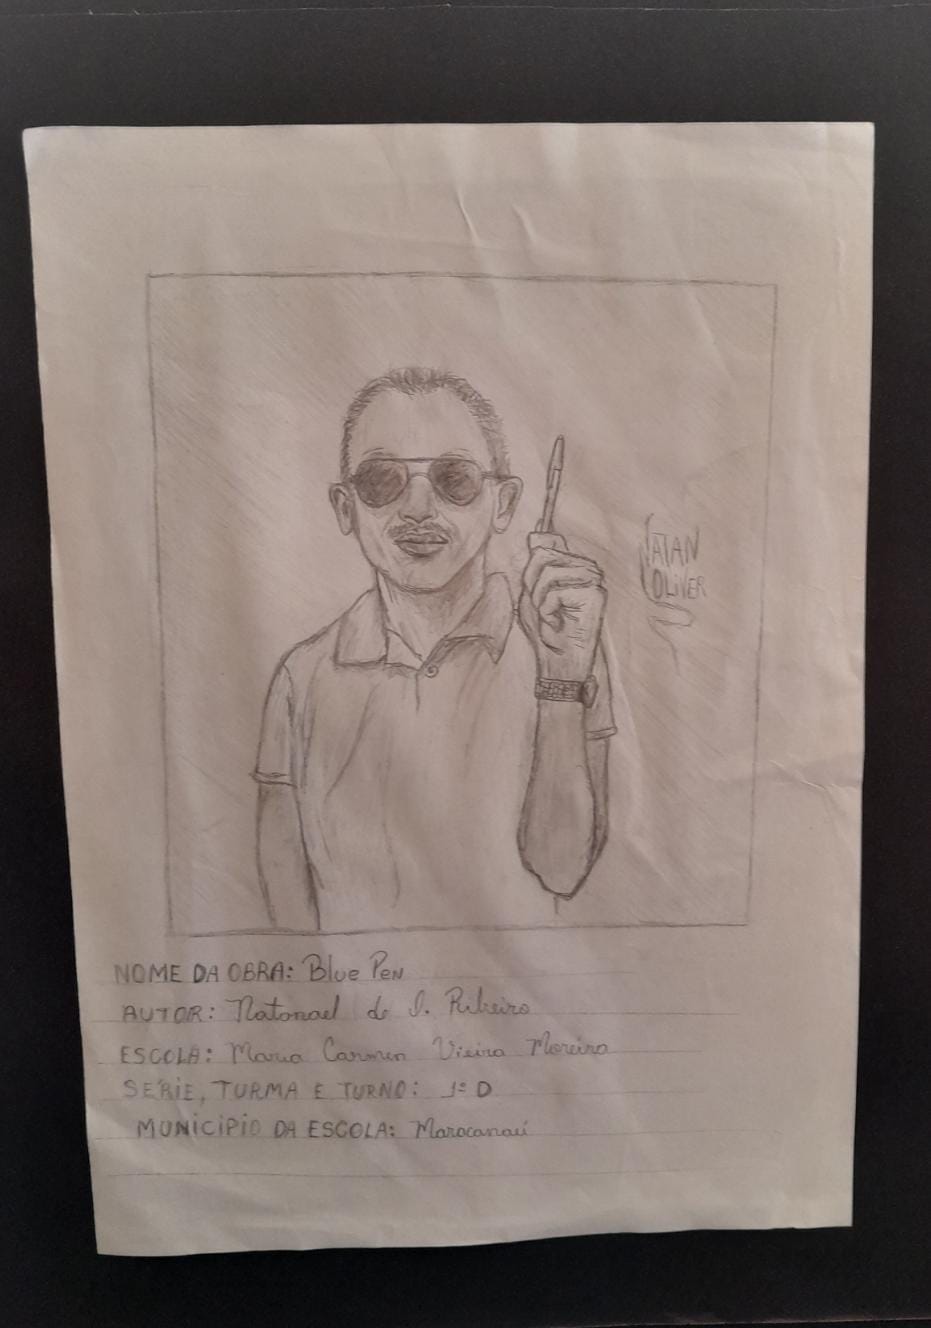 NATAN
OLIVER
NOME DA OBRA: Blue Pen
AUTOR: Natanael de S. Ribeiro
ESCOLA: Maria Carmen Vieira Moreira
SÉRIE, TURMA E TURNO: 1º D
MUNICIPIO DA ESCOLA: Maracanaú